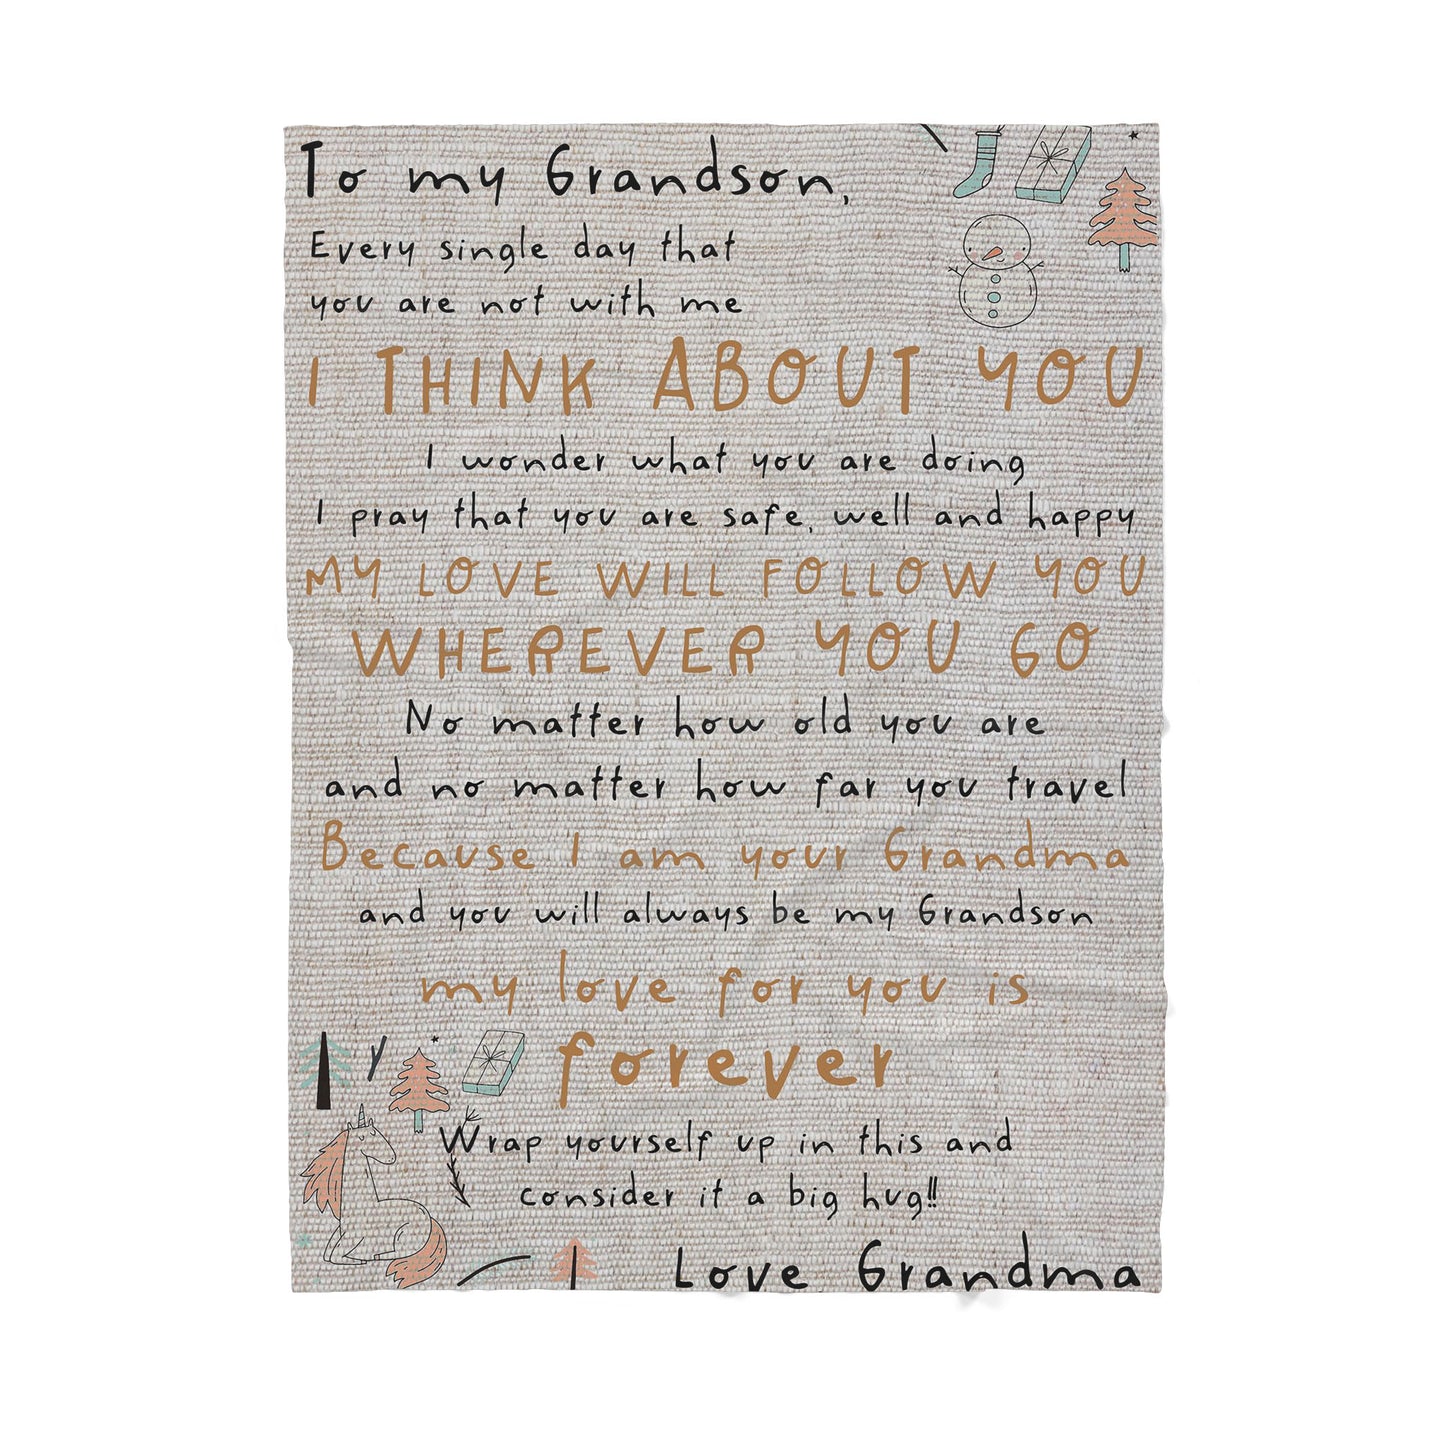 To my Grandson,
Every single day that
you are not with me
I THINK ABOUT YOU
I wonder what you are doing
I pray that you are safe, well and happy
MY LOVE WILL FOLLOW YOU
WHEREVER YOU GO
No matter how old you are
and no matter how far you travel
Because I am your Grandma
and you will always be my Grandson
my love for you is
forever
Wrap yourself up in this and
consider it a big hug!!
Love Grandma